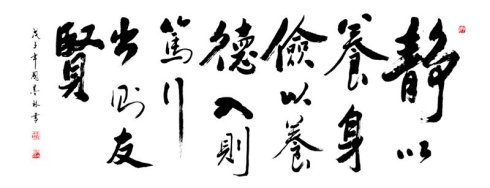 静以
養身
儉以養
德入則
篤行
出则友
賢
戊子年國書